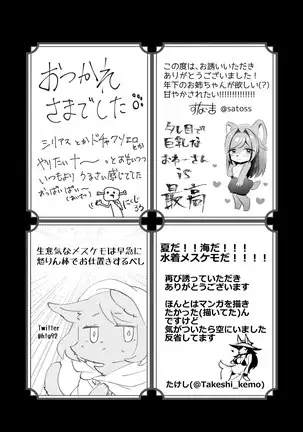 おつかれ
さまでした
シリアスとかドチャクソエロとか
やりたいナ〜っとおもいつつ
いつもよりうるさい感じでした
おっぱいぱい〜
この度は、お誘いいただき
ありがとうございました！
年下のお姉ちゃんが欲しい(?)
甘やかされたい!!!!!!!!!!!!!!!
@satoss
タレ目で
巨乳な
おねーさん
is
最高
生意気なメスケモは早急に
怒りん棒でお仕置きするべし
Twitter
@hto92
夏だ！！海だ！！！
水着メスケモだ！！！！
再び誘っていただき
ありがとうございます
ほんとはマンガを描き
たかった(描いてた)ん
ですけど
気がついたら空にいました
反省してます
たけし(@Takeshi_kemo)